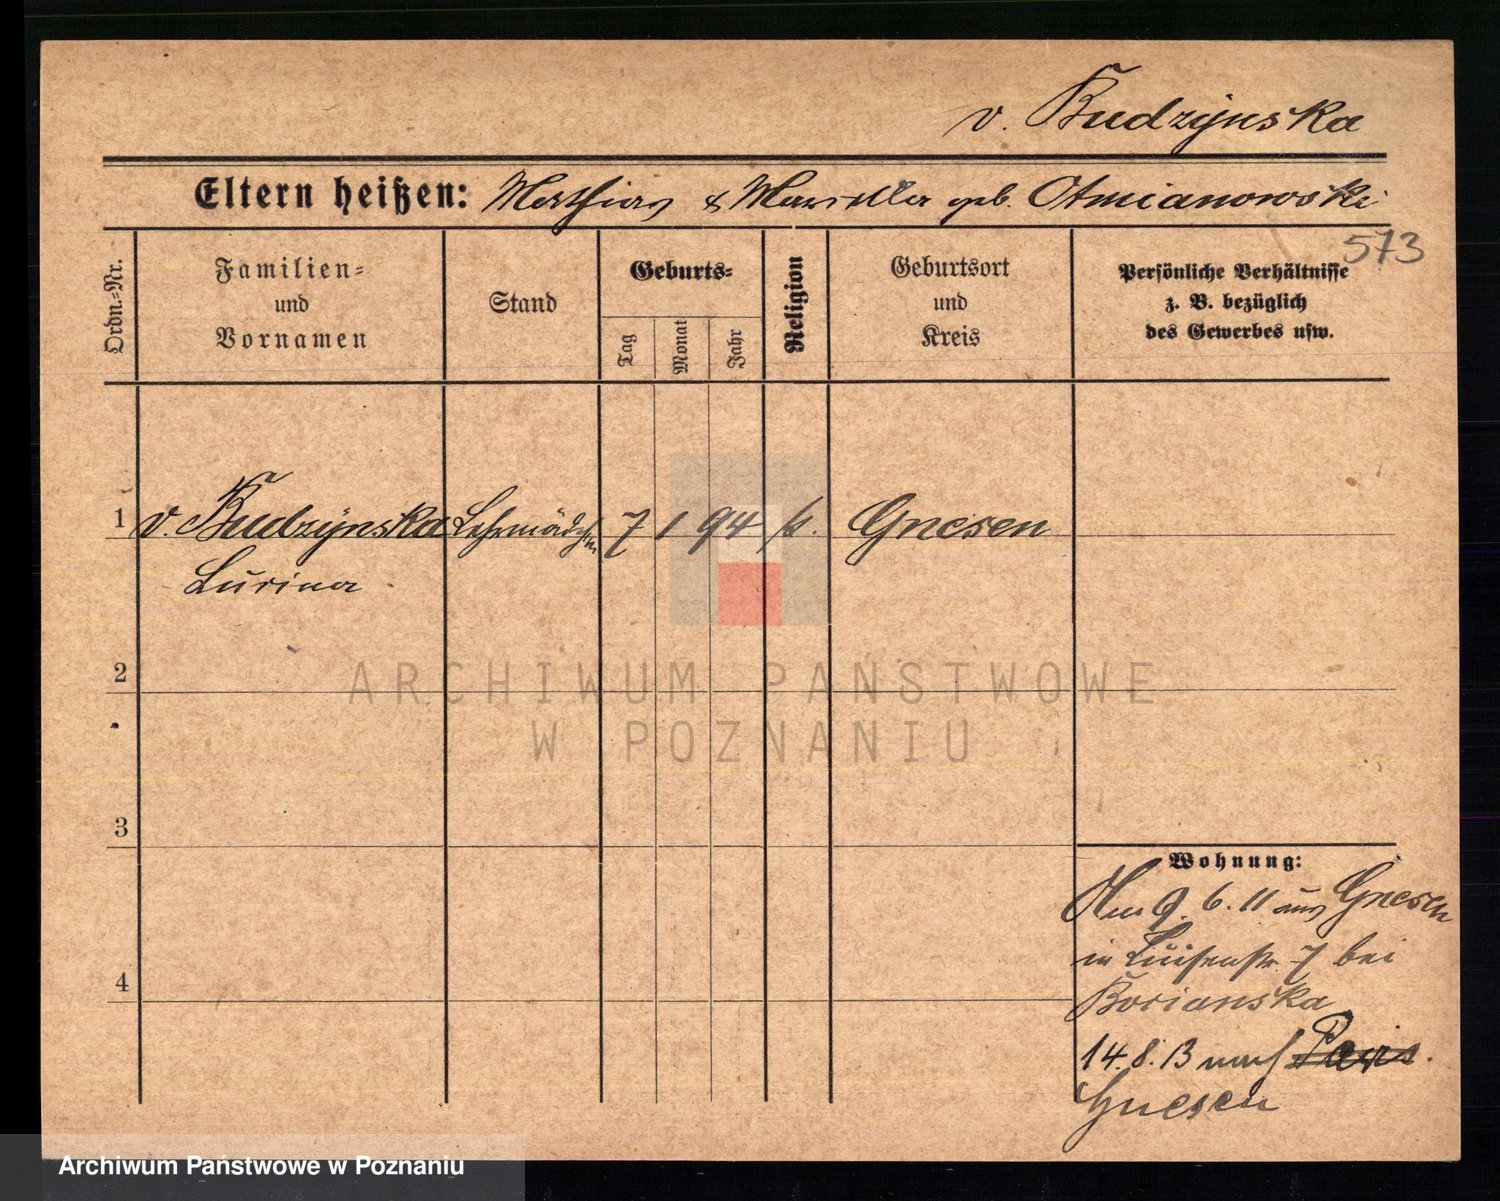 v. Budzynska
Eltern heißen: Mathias & Marzella geb. Otmianowski
573
Ordn.-Nr.
Familien-
und
Vornamen
Stand
Geburts-
Tag
Monat
Jahr
Religion
Geburtsort
und
Kreis
Persönliche Verhältnisse
z. B. bezüglich
des Gewerbes usw.
1 v. Budzynska Lehrmädchen 7 1 94 k. Gnesen
2
3
4
Wohnung:
9. 6. 11 aus Gnesen
in Luisenstr. 7 bei
14. 8. 13 nach Paris.
Gnesen
ARCHIWUM PAŃSTWOWE
W POZNANIU
Archiwum Państwowe w Poznaniu